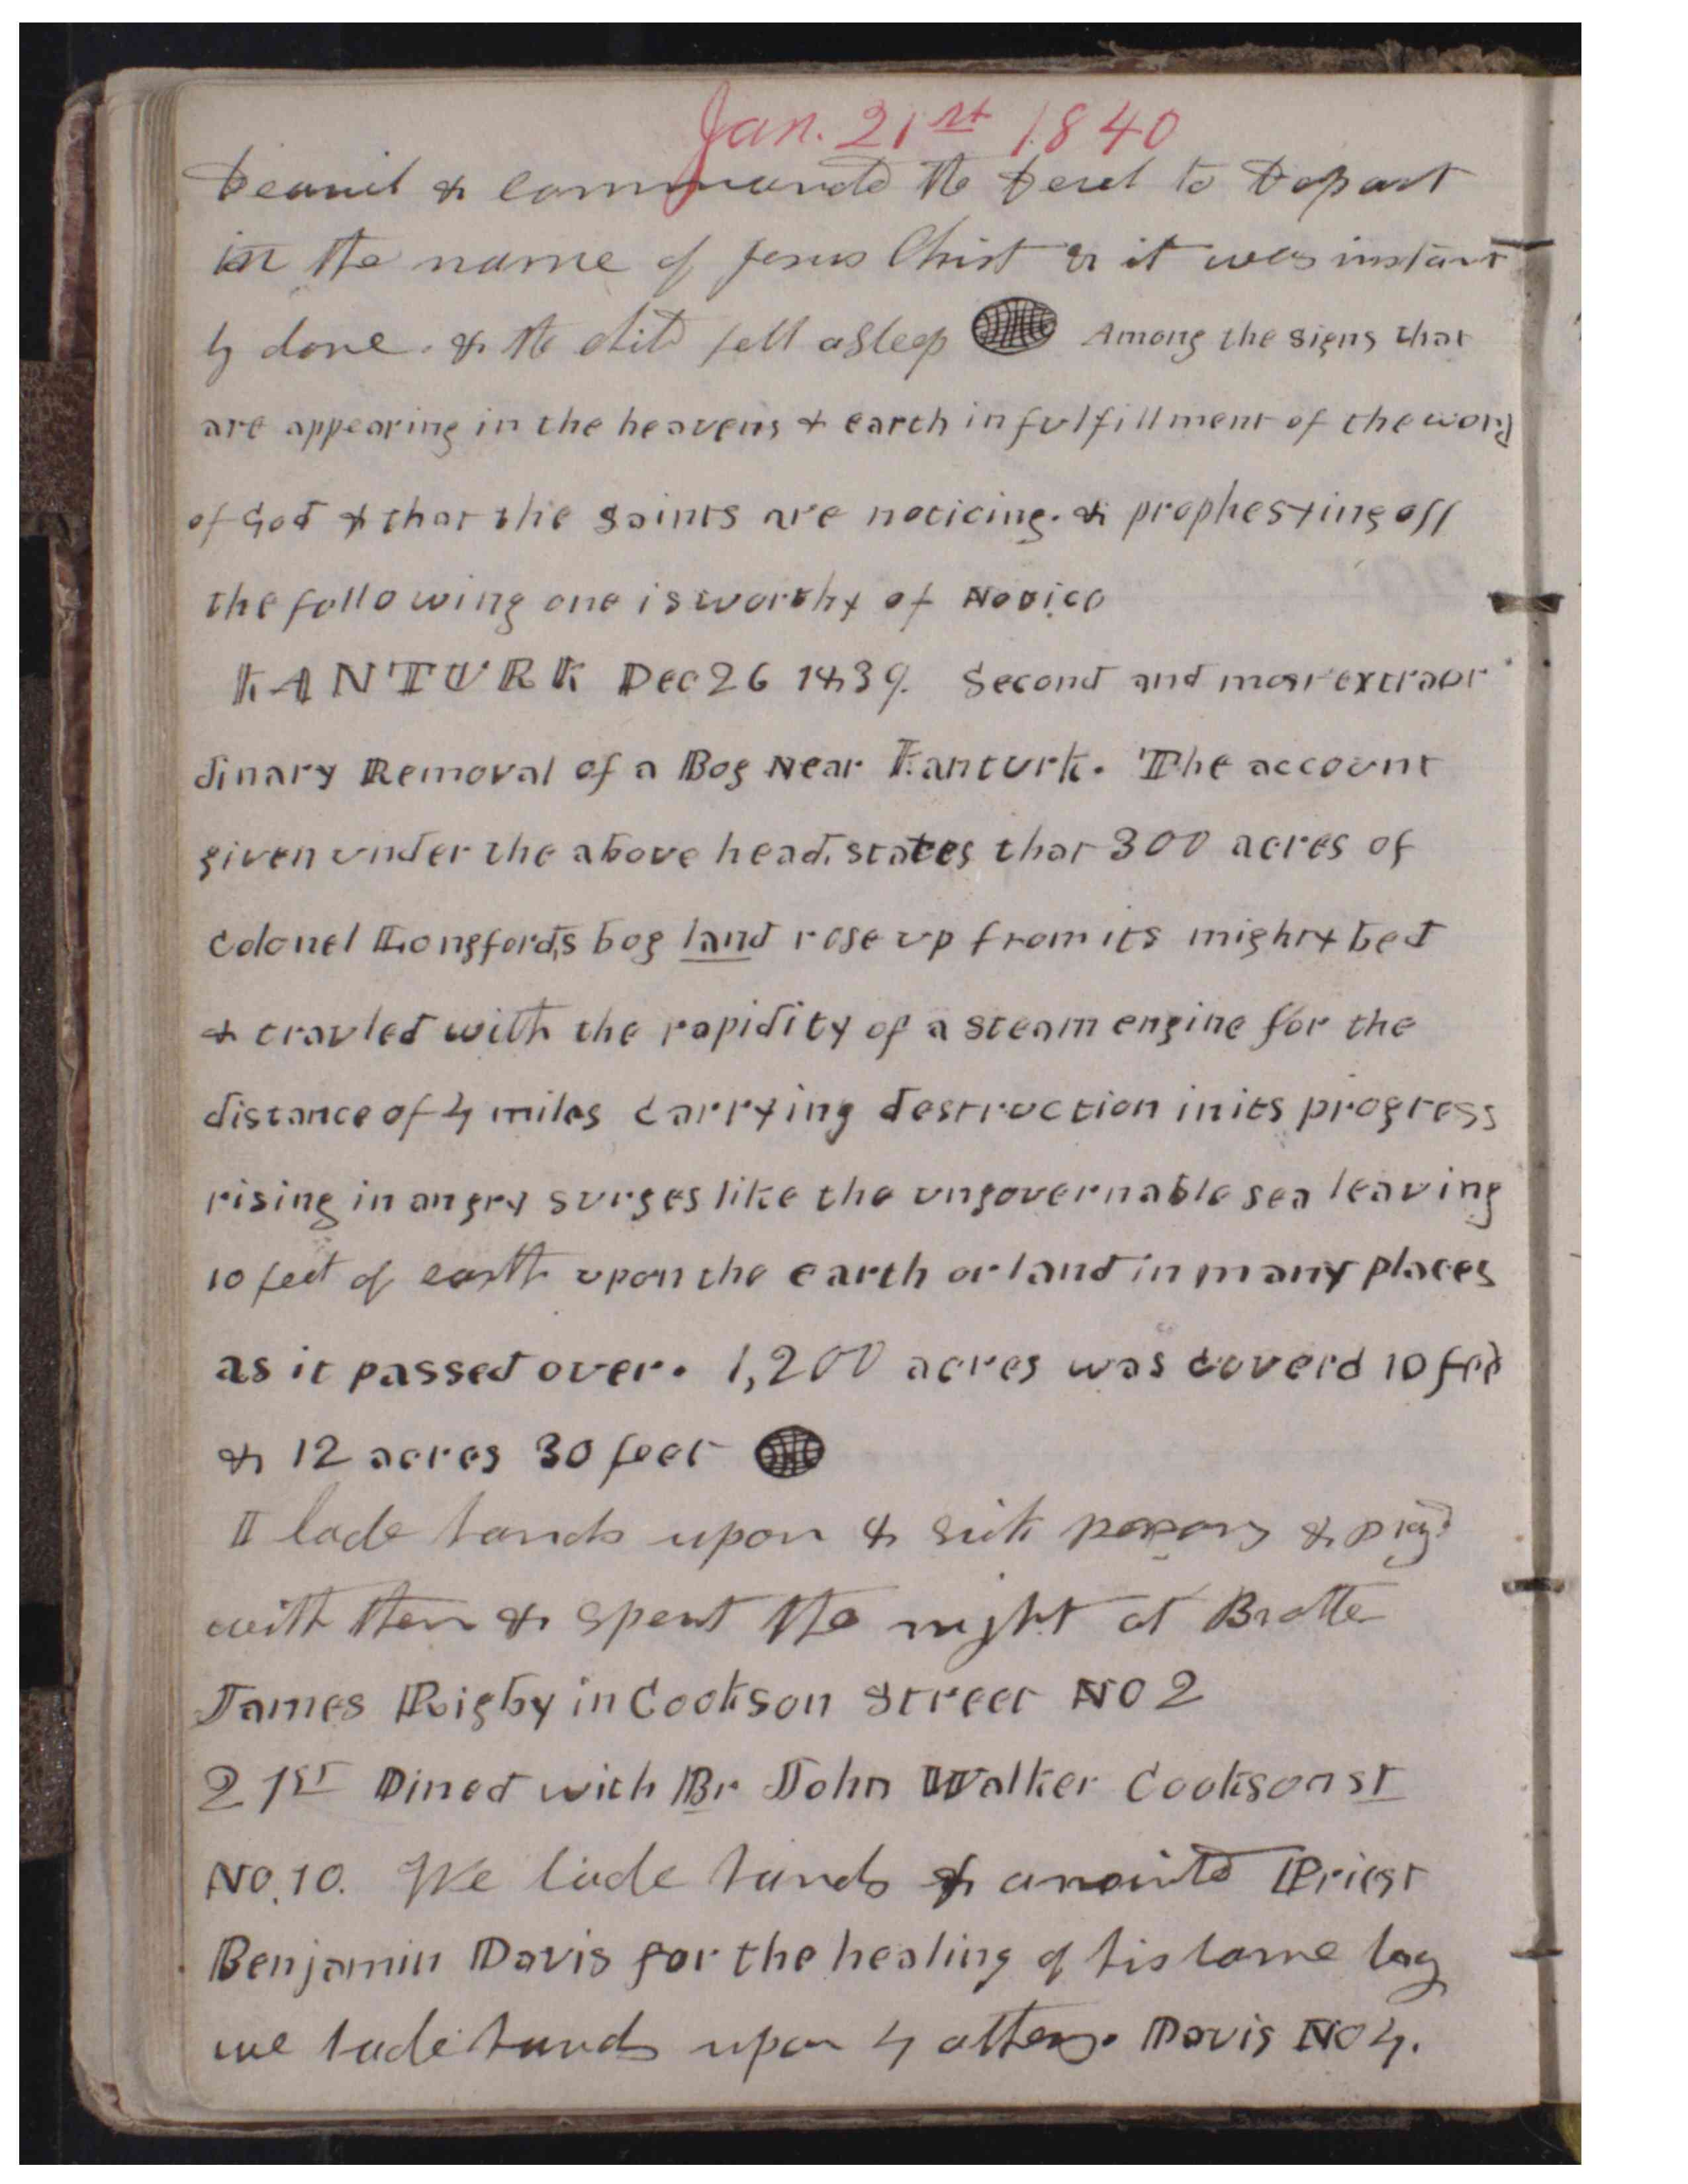 Jan. 21st 1840
& commanded the devil to depart
in the name of Jesus Christ & it was instant
ly done. & the child fell asleep Among the signs that
are appearing in the heavens & earth in fulfillment of the word
of God & that the saints are noticing. & prophesying off
the following one is worthy of Notice
KANTURK Dec 26 1839. Second and most extraor
dinary Removal of a Bog Near Kanturk. The account
given under the above head, states that 300 acres of
Colonel Longford,s bog land rose up from its mighty bed
& travled with the rapidity of a steam engine for the
distance of 4 miles Carrying destruction in its progress
rising in angry surges like the ungovernable sea leaving
10 feet of earth upon the earth or land in many places
as it passed over. 1,200 acres was coverd 10 feet
& 12 acres 30 feet
I lade hands upon sick persons &
with them & spent the night at Brother
James Rigby in Cookson Street No 2
21st Dined with Br John Walker Cookson st
No. 10. We lade hands & anointed Priest
Benjamin Davis for the healing of his lame leg
we lade hands upon 4 others. Davis No 4.